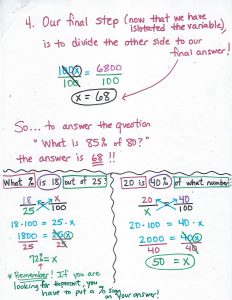 4. Our final step (now that we have
isolated the variable),
is to divide the other side to our
final answer!
100x = 6800
100 100
x = 68
So... to answer the question
"What is 85% of 80?"
the answer is 68!!
What % is 18 out of 25?
18 = x
25 100
18·100 = 25·x
1800 = 25x
25 25
72% = x
* Remember! If you are
looking for %percent, you
have to put a % sign
on your answer!
20 is 40% of what number?
20 = 40
x 100
20·100 = 40·x
2000 = 40x
40 40
50 = x